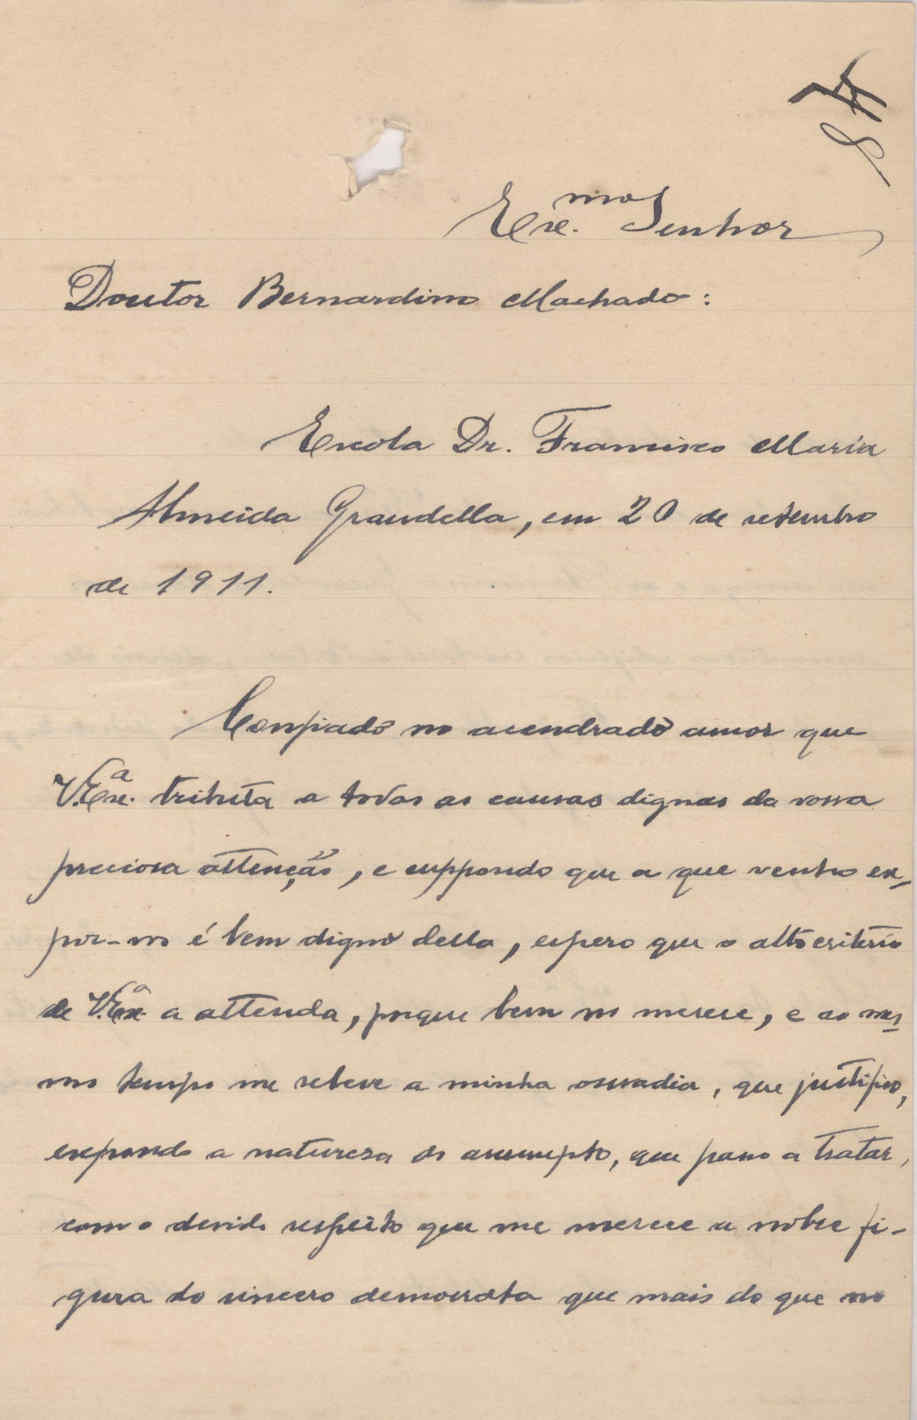 Exc.mo Senhor
Doutor Bernardino Machado:
Escola Dr. Francisco Maria
Almeida Grandella, em 20 de setembro
de 1911.
Confiado no acendrado amor que
V. Exc.a tributa a todas as causas dignas da vossa
preciosa attenção, e suppondo que a que venho ex-
por-vos é bem digna della, espero que o alto criterio
de V. Exa a attenda, porque bem no merece, e ao mes-
mo tempo me releve a minha ousadia, que justifico,
expondo a natureza do assumpto, que passo a tratar,
com o devido respeito que me merece a nobre fi-
gura do sincero democrata que mais do que no